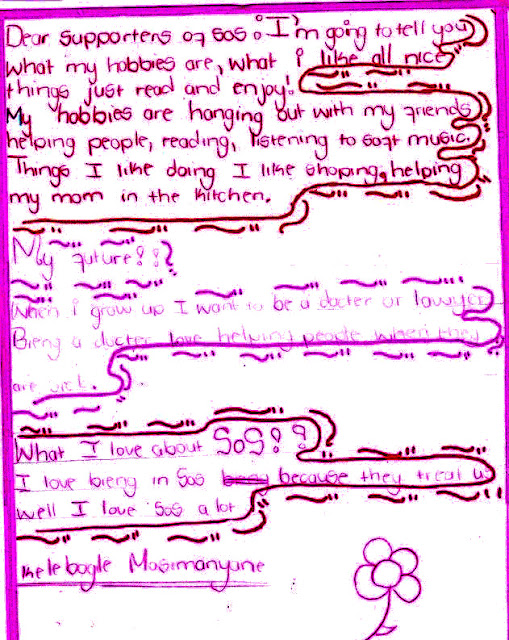 Dear supporters of SOS: I'm going to tell you
what my hobbies are, what i like all nice
things just read and enjoy!
My hobbies are hanging out with my friends
helping people, reading, listening to soft music.
Things I like doing I like shoping, helping
my mom in the kitchen.
My future!!?
When i grow up I want to be a docter or lawyer
Bieng a docter love helping people when they
are sick.
What I love about SOS!?
I love bieng in SOS because they treat us
well I love SOS a lot
Masimanyane